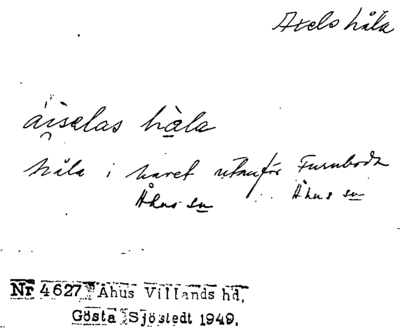 Axels håla
áiselas hàla
håla i havet utanför Furuboda
Åhus sn Åhus sn
Nr 4627 Åhus Villands hd.
Gösta Sjöstedt 1949.